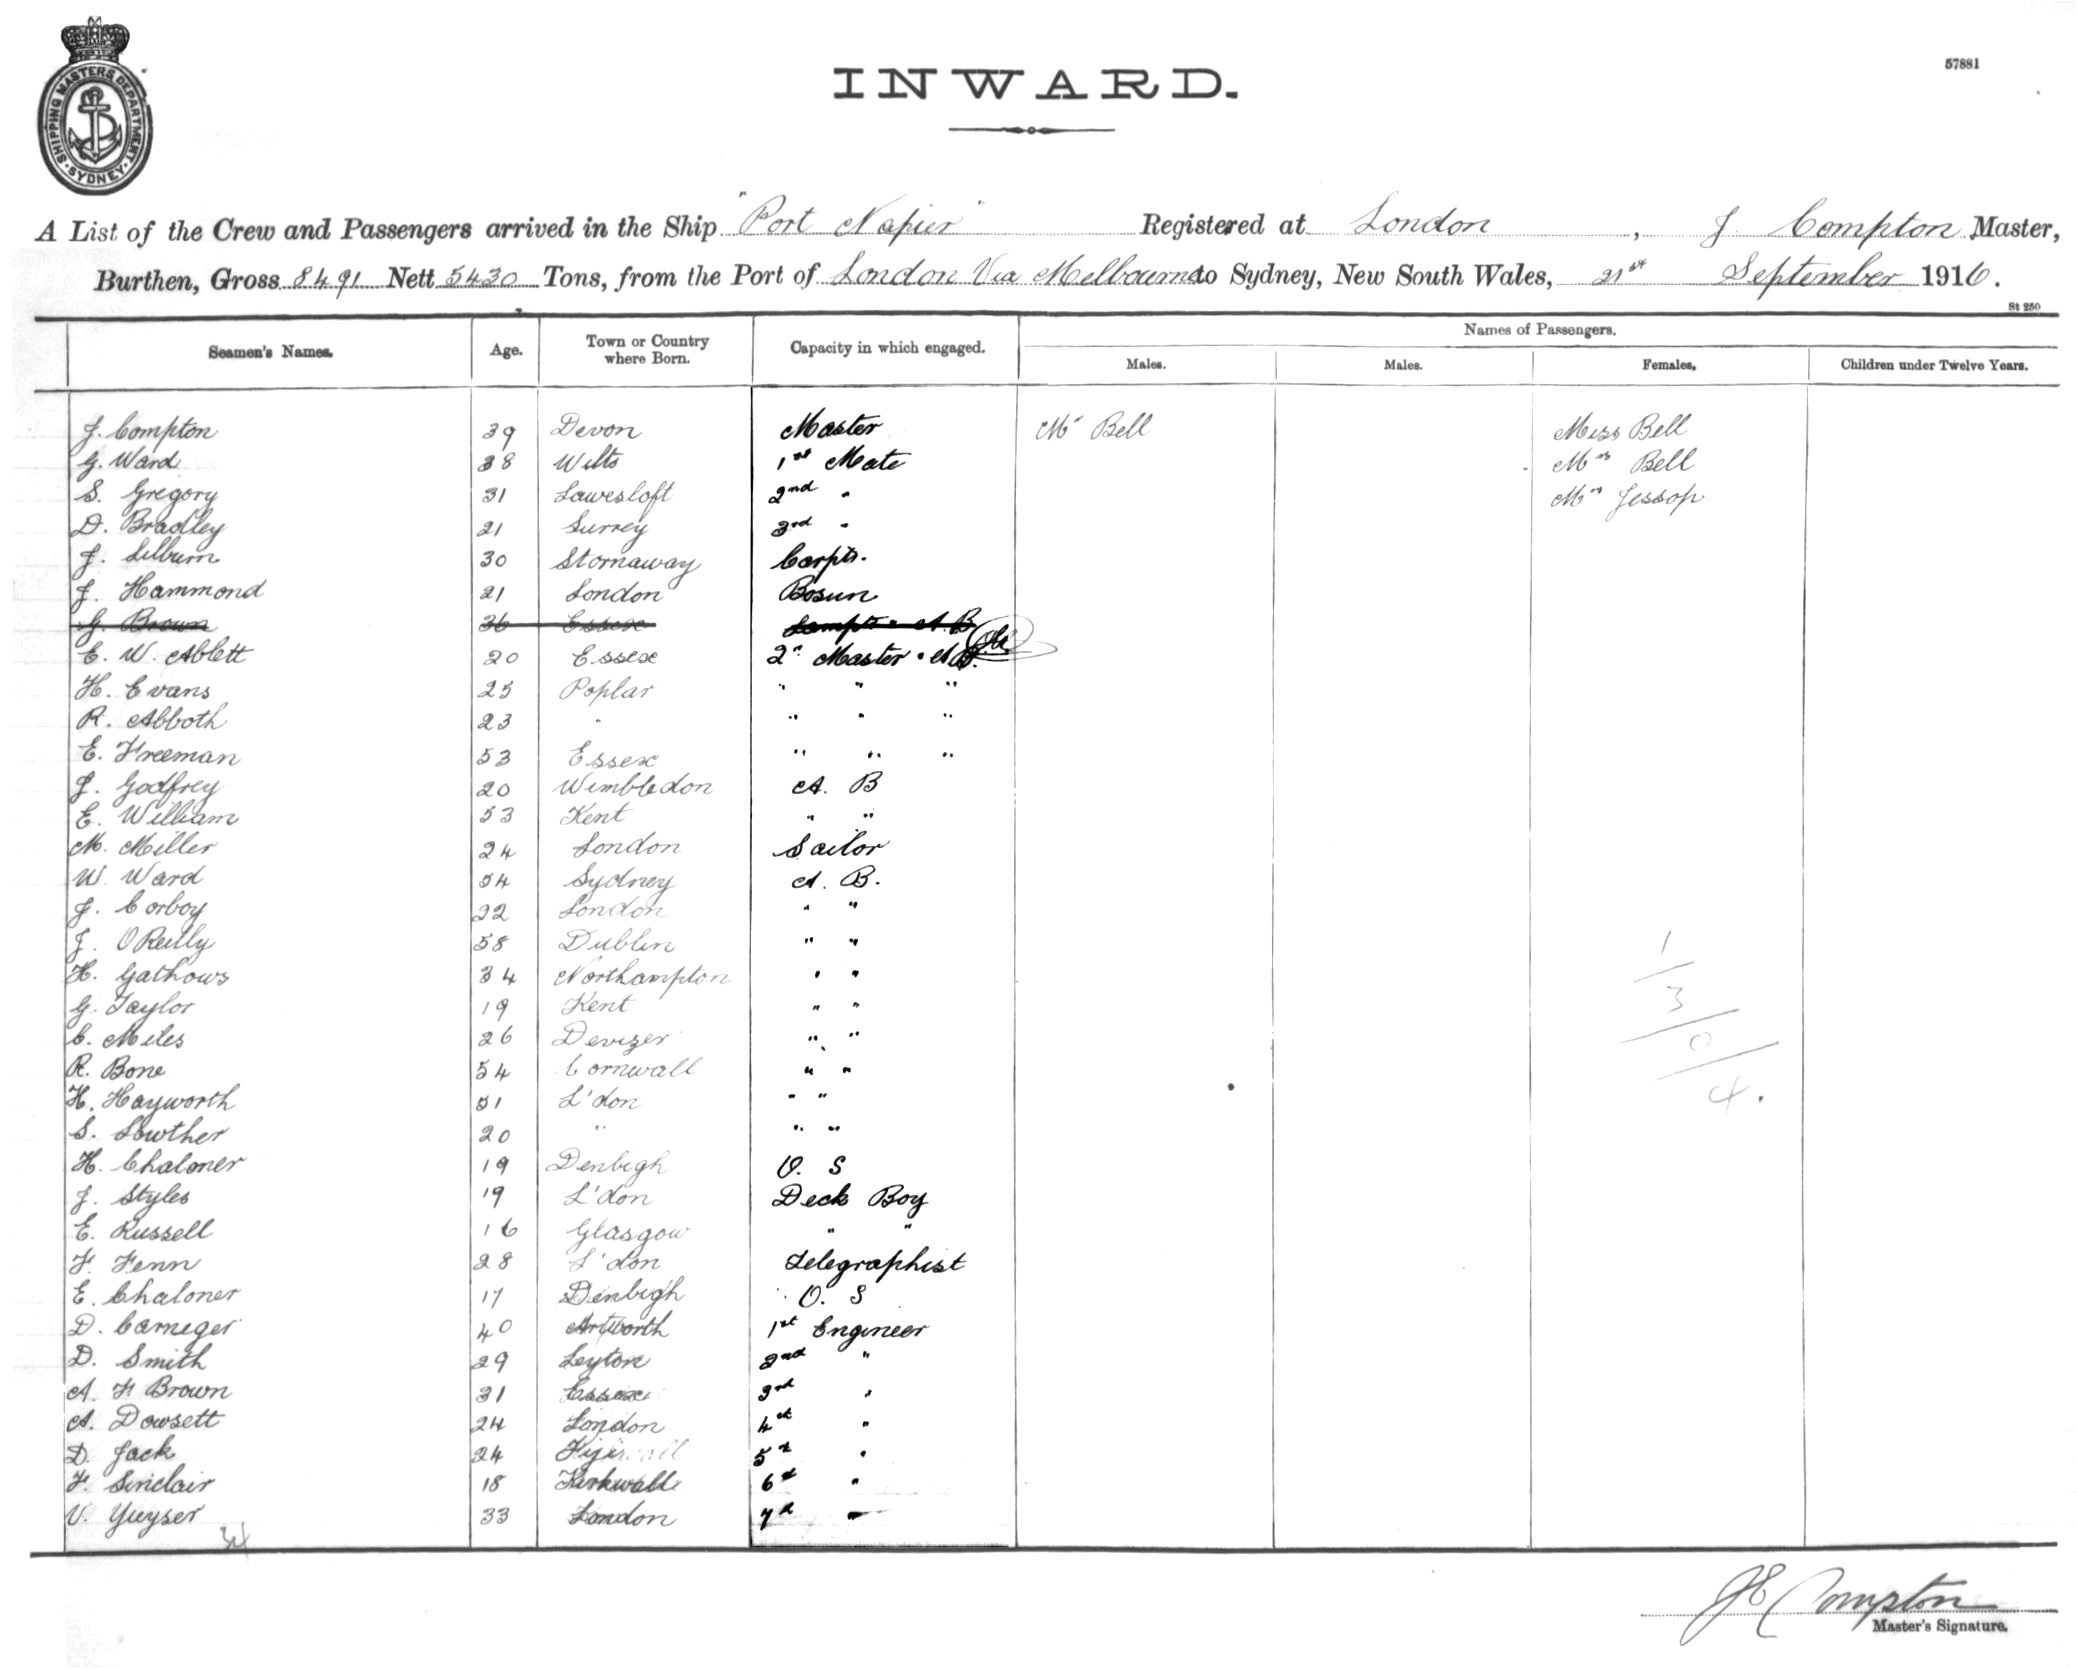 SHIPPING MASTERS DEPARTMENT · SYDNEY ·
57881
INWARD.
A List of the Crew and Passengers arrived in the Ship "Port Napier" Registered at London, J Compton Master,
Burthen, Gross 8491 Nett 5430 Tons, from the Port of London Via Melbourne to Sydney, New South Wales, 21st September 1916.
St 250
Seamen's Names. Age. Town or Country where Born. Capacity in which engaged. Names of Passengers.
Males. Males. Females. Children under Twelve Years.
J. Compton 39 Devon Master Mr Bell Miss Bell
G. Ward 38 Wilts 1st Mate Mrs Bell
S. Gregory 31 Lowesloft 2nd " Mrs Jessop
D. Bradley 21 Surrey 3rd "
J. Lilburn 30 Stornaway Carptr.
J. Hammond 21 London Bosun
G. Brown 36 Essex Lamptr. A.B
E. W. Ablett 20 Essex 2nd Master . A.B.
H. Evans 25 Poplar " " "
R. Abboth 23 " " " "
E. Freeman 53 Essex " " "
J. Godfrey 20 Wimbledon A. B
E. William 53 Kent " "
M. Miller 24 London Sailor
W. Ward 54 Sydney A. B.
J. Corboy 22 London " "
J. OReilly 58 Dublin " "
H. Gathows 34 Northampton " "
G. Taylor 19 Kent " "
C. Miles 26 Devizer " "
R. Bone 54 Cornwall " "
H. Hayworth 51 L'don " "
S. Lowther 20 " " "
H. Chaloner 19 Denbigh O. S
J. Styles 19 L'don Deck Boy
E. Russell 16 Glasgow " "
F. Fenn 28 L'don Telegraphist
E. Chaloner 17 Denbigh O. S
D. Carneger 40 1st Engineer
D. Smith 29 Leyton 2nd "
A. F Brown 31 Essex 3rd "
A. Dowsett 24 London 4th "
D. Jack 24 5th "
F. Sinclair 18 Kirkwall 6th "
V. Yueyser 33 London 7th "
34
1
3
0
4.
J E Compton
Master's Signature.